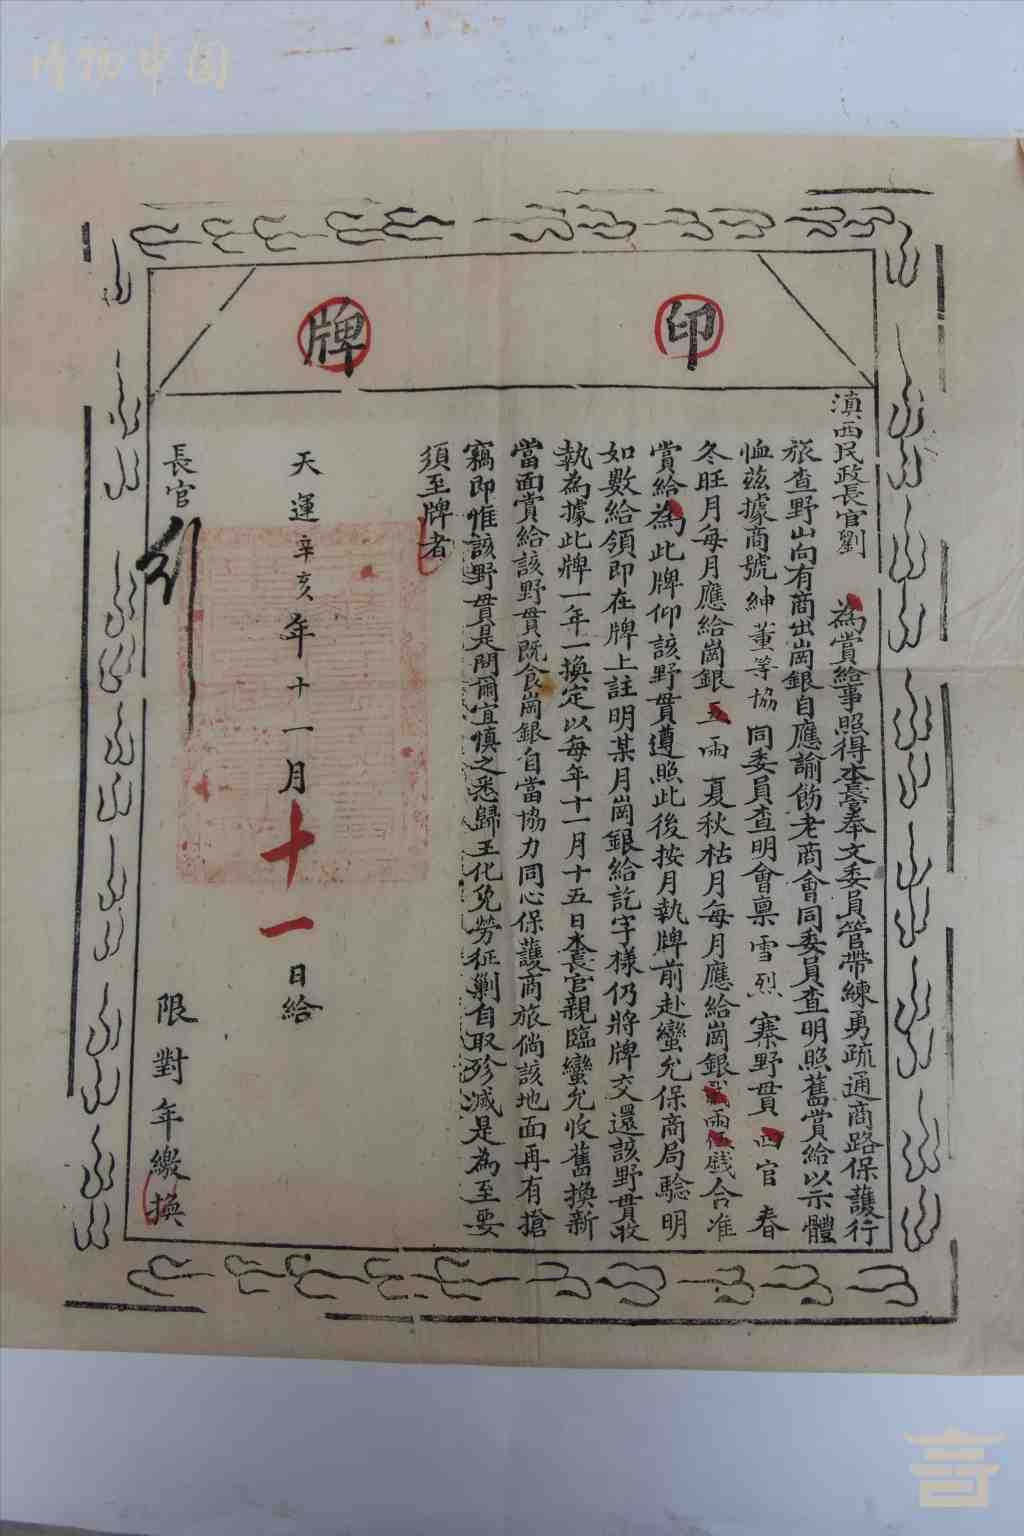 印牌
滇西民政長官劉 為賞給事照得本長官奉文委員管帶練勇疏通商路保護行
旅查野山向有商出崗銀自應諭飭老商會同委員查明照舊賞給以示體
恤茲據商號紳董等協同委員查明會稟雪烈寨野貫四官春
冬旺月每月應給崗銀五兩夏秋枯月每月應給崗銀 兩 錢合准
賞給為此牌仰該野貫遵照此後按月執牌前赴蠻允保商局驗明
如數給領即在牌上註明某月崗銀給訖字樣仍將牌交還該野貫收
執為據此牌一年一換定以每年十一月十五日本長官親臨蠻允收舊換新
當面賞給該野貫既食崗銀自當協力同心保護商旅倘該地面再有搶
竊即惟該野貫是問爾宜慎之悉歸王化免勞征剿自取殄滅是為至要
須至牌者
天運辛亥年十一月十一日給
長官
限對年繳換